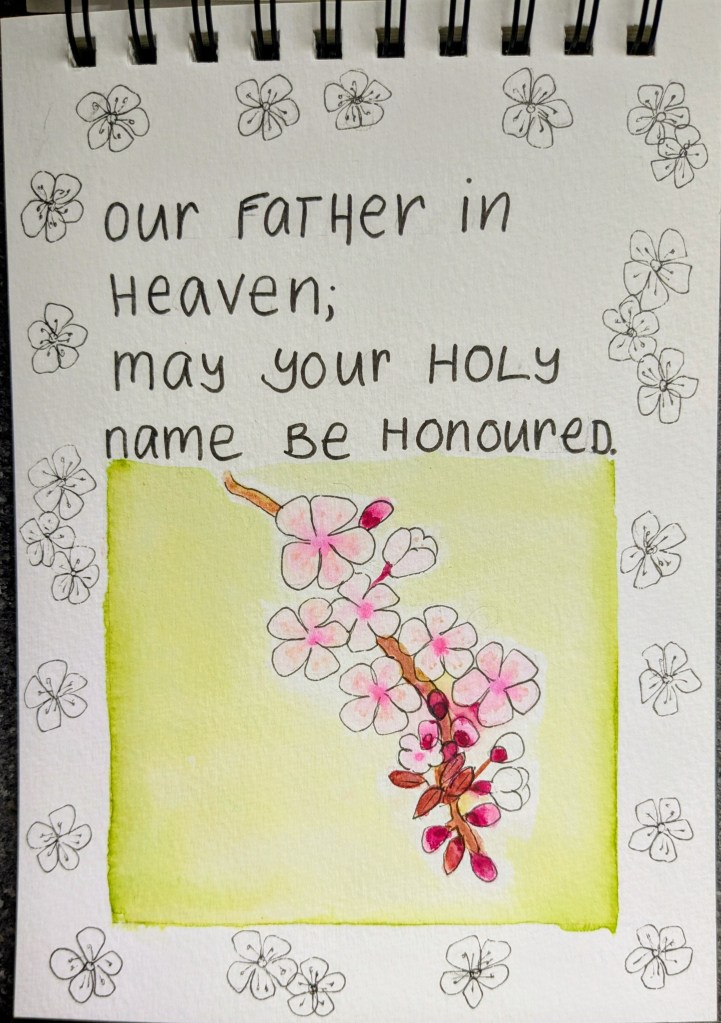 our FaTHer in
Heaven;
may your HOLY
name Be HonoureD.